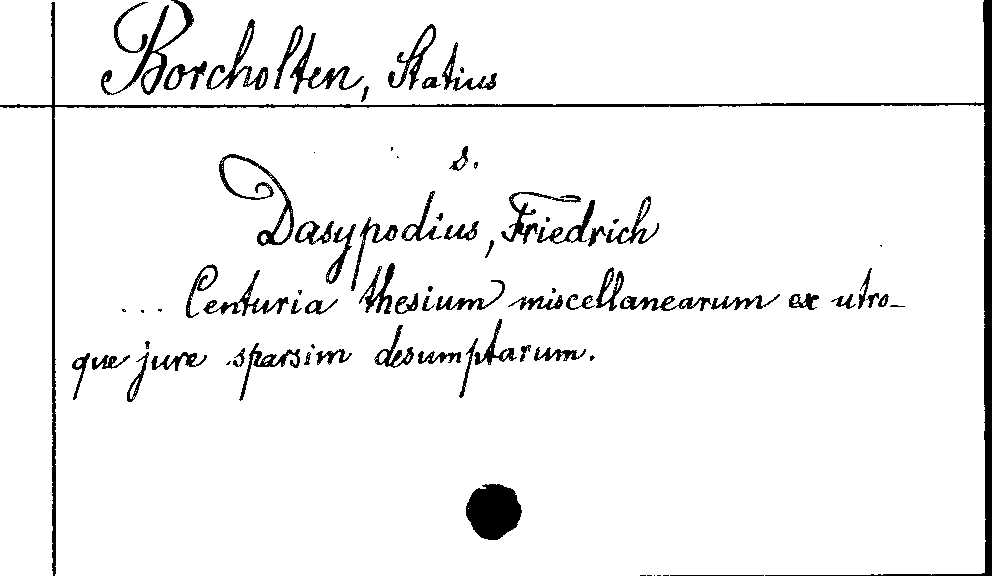 Borcholten, Statius
s.
Dasypodius, Friedrich
... Centuria thesium miscellanearum ex utro-
que jure sparsim desumptarum.